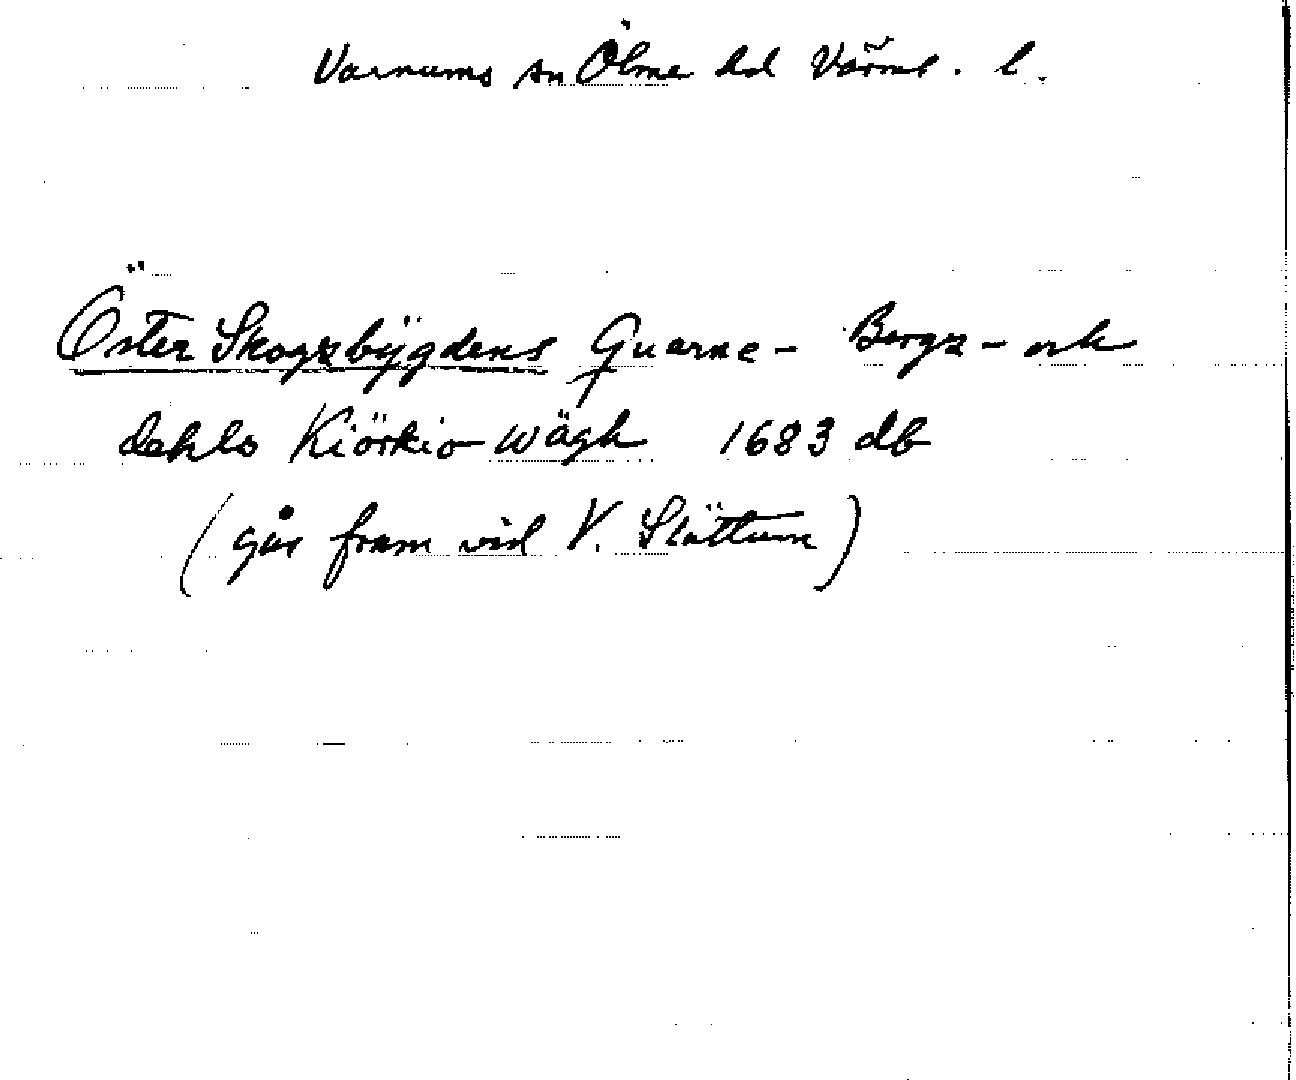 Varnums sn Ölme hd Värml. l.
Öster Skogzbÿgdens Quarne- Bergz- och
dahls Kiörkio wägh 1683 db
(går fram vid V. Slöttum)